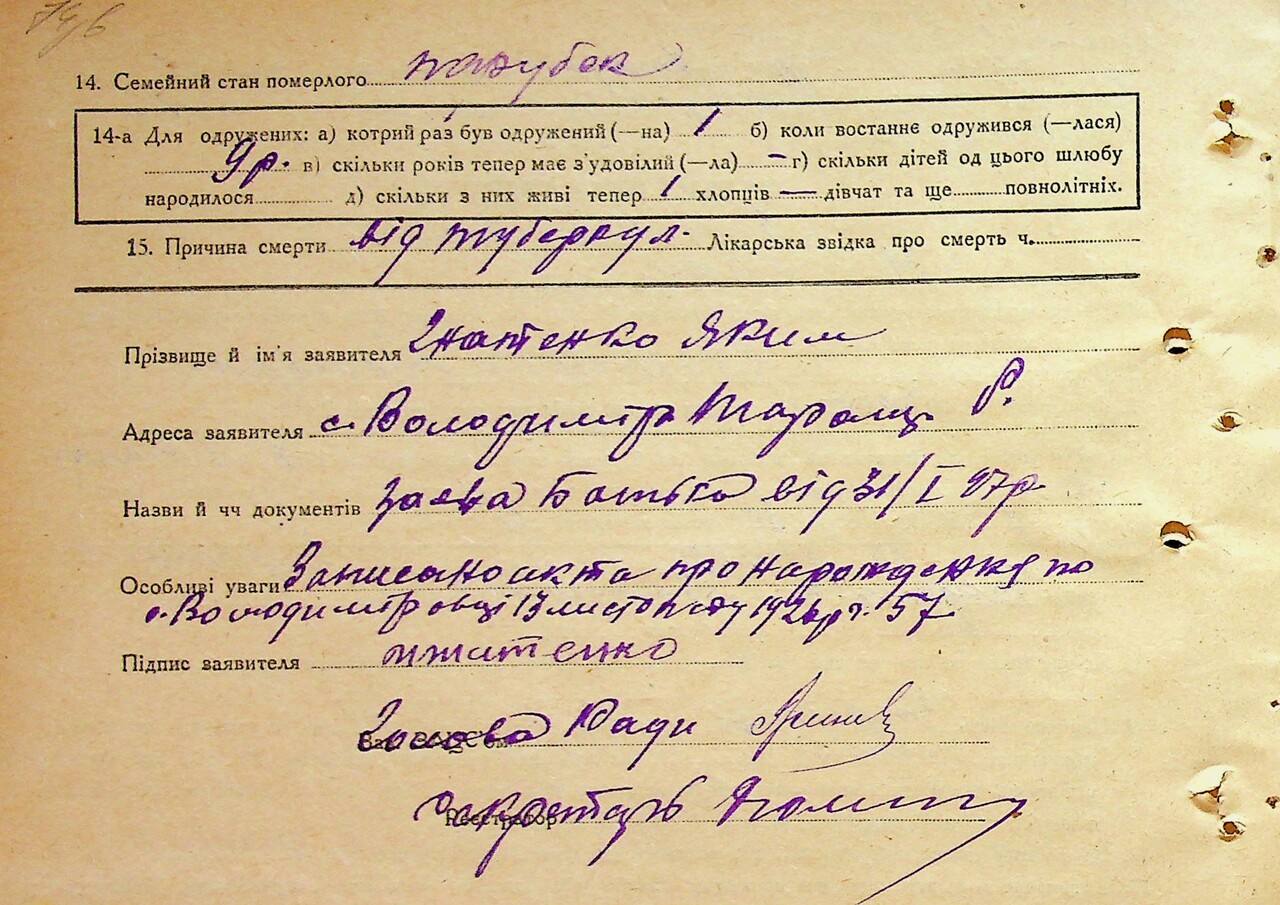 14. Семейний стан померлого парубок
14-а Для одружених: а) котрий раз був одружений (—на) 1 б) коли востаннє одружився (—лася)
9р. в) скільки років тепер має з'удовілий (—ла) — г) скільки дітей од цього шлюбу
народилося д) скільки з них живі тепер 1 хлопців — дівчат та ще повнолітніх.
15. Причина смерти від туберкул. Лікарська звідка про смерть ч.
Прізвище й ім'я заявителя Гнатенко Яким
Адреса заявителя с. Володимирів Таращ. Р.
Назви й чч документів Заява Батька від 31/I 27р
Особливі уваги Записано акта про нарождення по
с. Володимировці 13 листопаду 1926р ч. 57
Підпис заявителя гнатенко
Голова Ради
Секретарь
Реєстратор